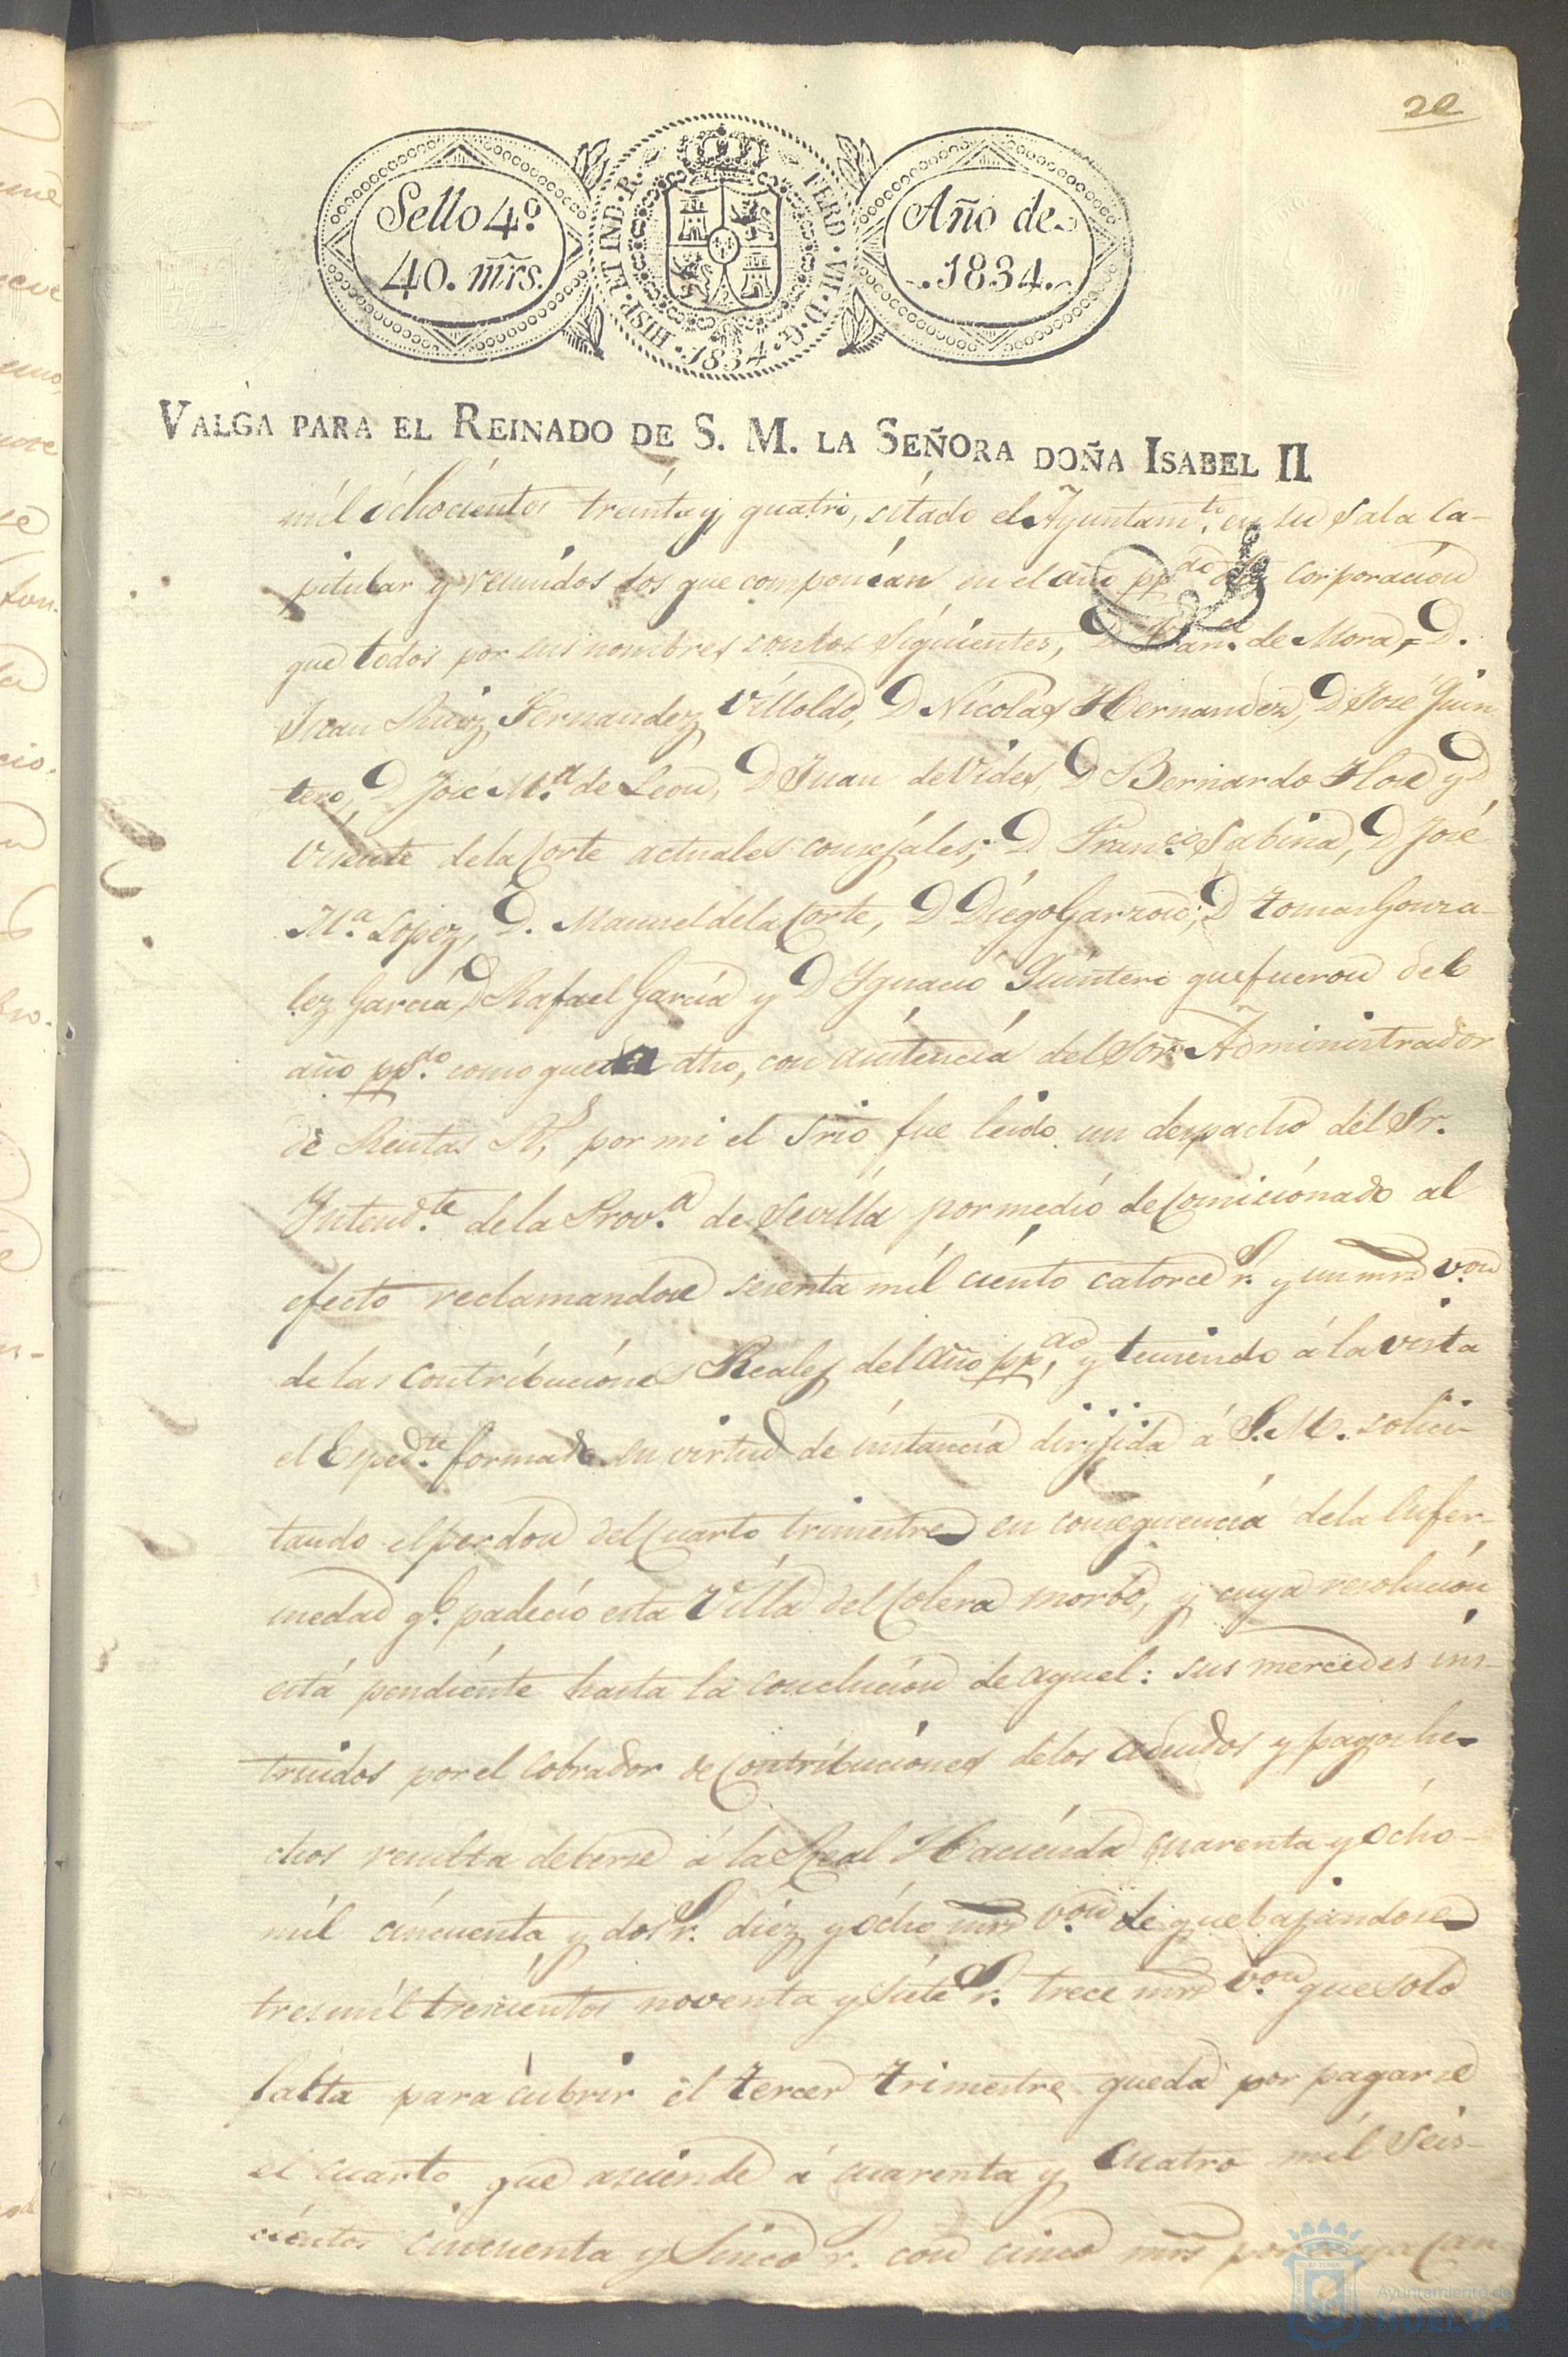 20
Sello 4º
40. mrs.
HISP. ET IND. R. FERD. VII. D. G. 1834.
Año de
1834.
VALGA PARA EL REINADO DE S. M. LA SEÑORA DOÑA ISABEL II
mil ochocientos treinta y quatro, sitado el Ayuntamto. en su sala ca-
pitular y reunidos los que componian en el año ppdo. corporacion
que todos por sus nombres son los siguientes, D. de Mora, D.
Juan Ruiz Fernandez Villoldo, D Nicolas Hernandez, D José Quin
tero, D José Ma. de Leon, D Juan de Vides, D Bernardo Flor y D
Vicente de la Corte actuales consejales; D Franco. Sabina, D José
Ma. Lopez, D. Manuel de la Corte, D Diego Garzon, D Tomas Gonza-
lez Garcia, D Rafael Garcia y D Ygnacio Quintero que fueron del
año ppdo. como queda dho, con asistencia del Sor. Administrador
de Rentas Rs, por mi el Srio fue leido un despacho del Sr.
Intendte. de la Prova. de Sevilla por medio de comicionado al
efecto reclamandose sesenta mil ciento catorce r. y un mrs von
de las contribuciones Reales del año ppdo, y teniendo á la vista
el Espedte. formado en virtud de instancia dirijida á S. M. solici-
tando el perdon del cuarto trimestre en consequencia de la Enfer-
medad qe. padecio esta Villa del Colera morbo, y cuya resolucion
está pendiente hasta la conclucion de aquel: sus mercedes ins-
truidos por el cobrador de contribuciones de los adeudos y pagos he-
chos resulta deberse á la Real Hacienda cuarenta y ocho
mil cincuenta y dos r. diez y ocho mrs von de que bajandose
tres mil trescientos noventa y siete r. trece mrs von que solo
falta para cubrir el tercer trimestre queda por pagarse
el cuarto que asciende á cuarenta y cuatro mil seis-
cientos cincuenta y sinco r. con cinco mrs por cuya can
Ayuntamiento de
HUELVA